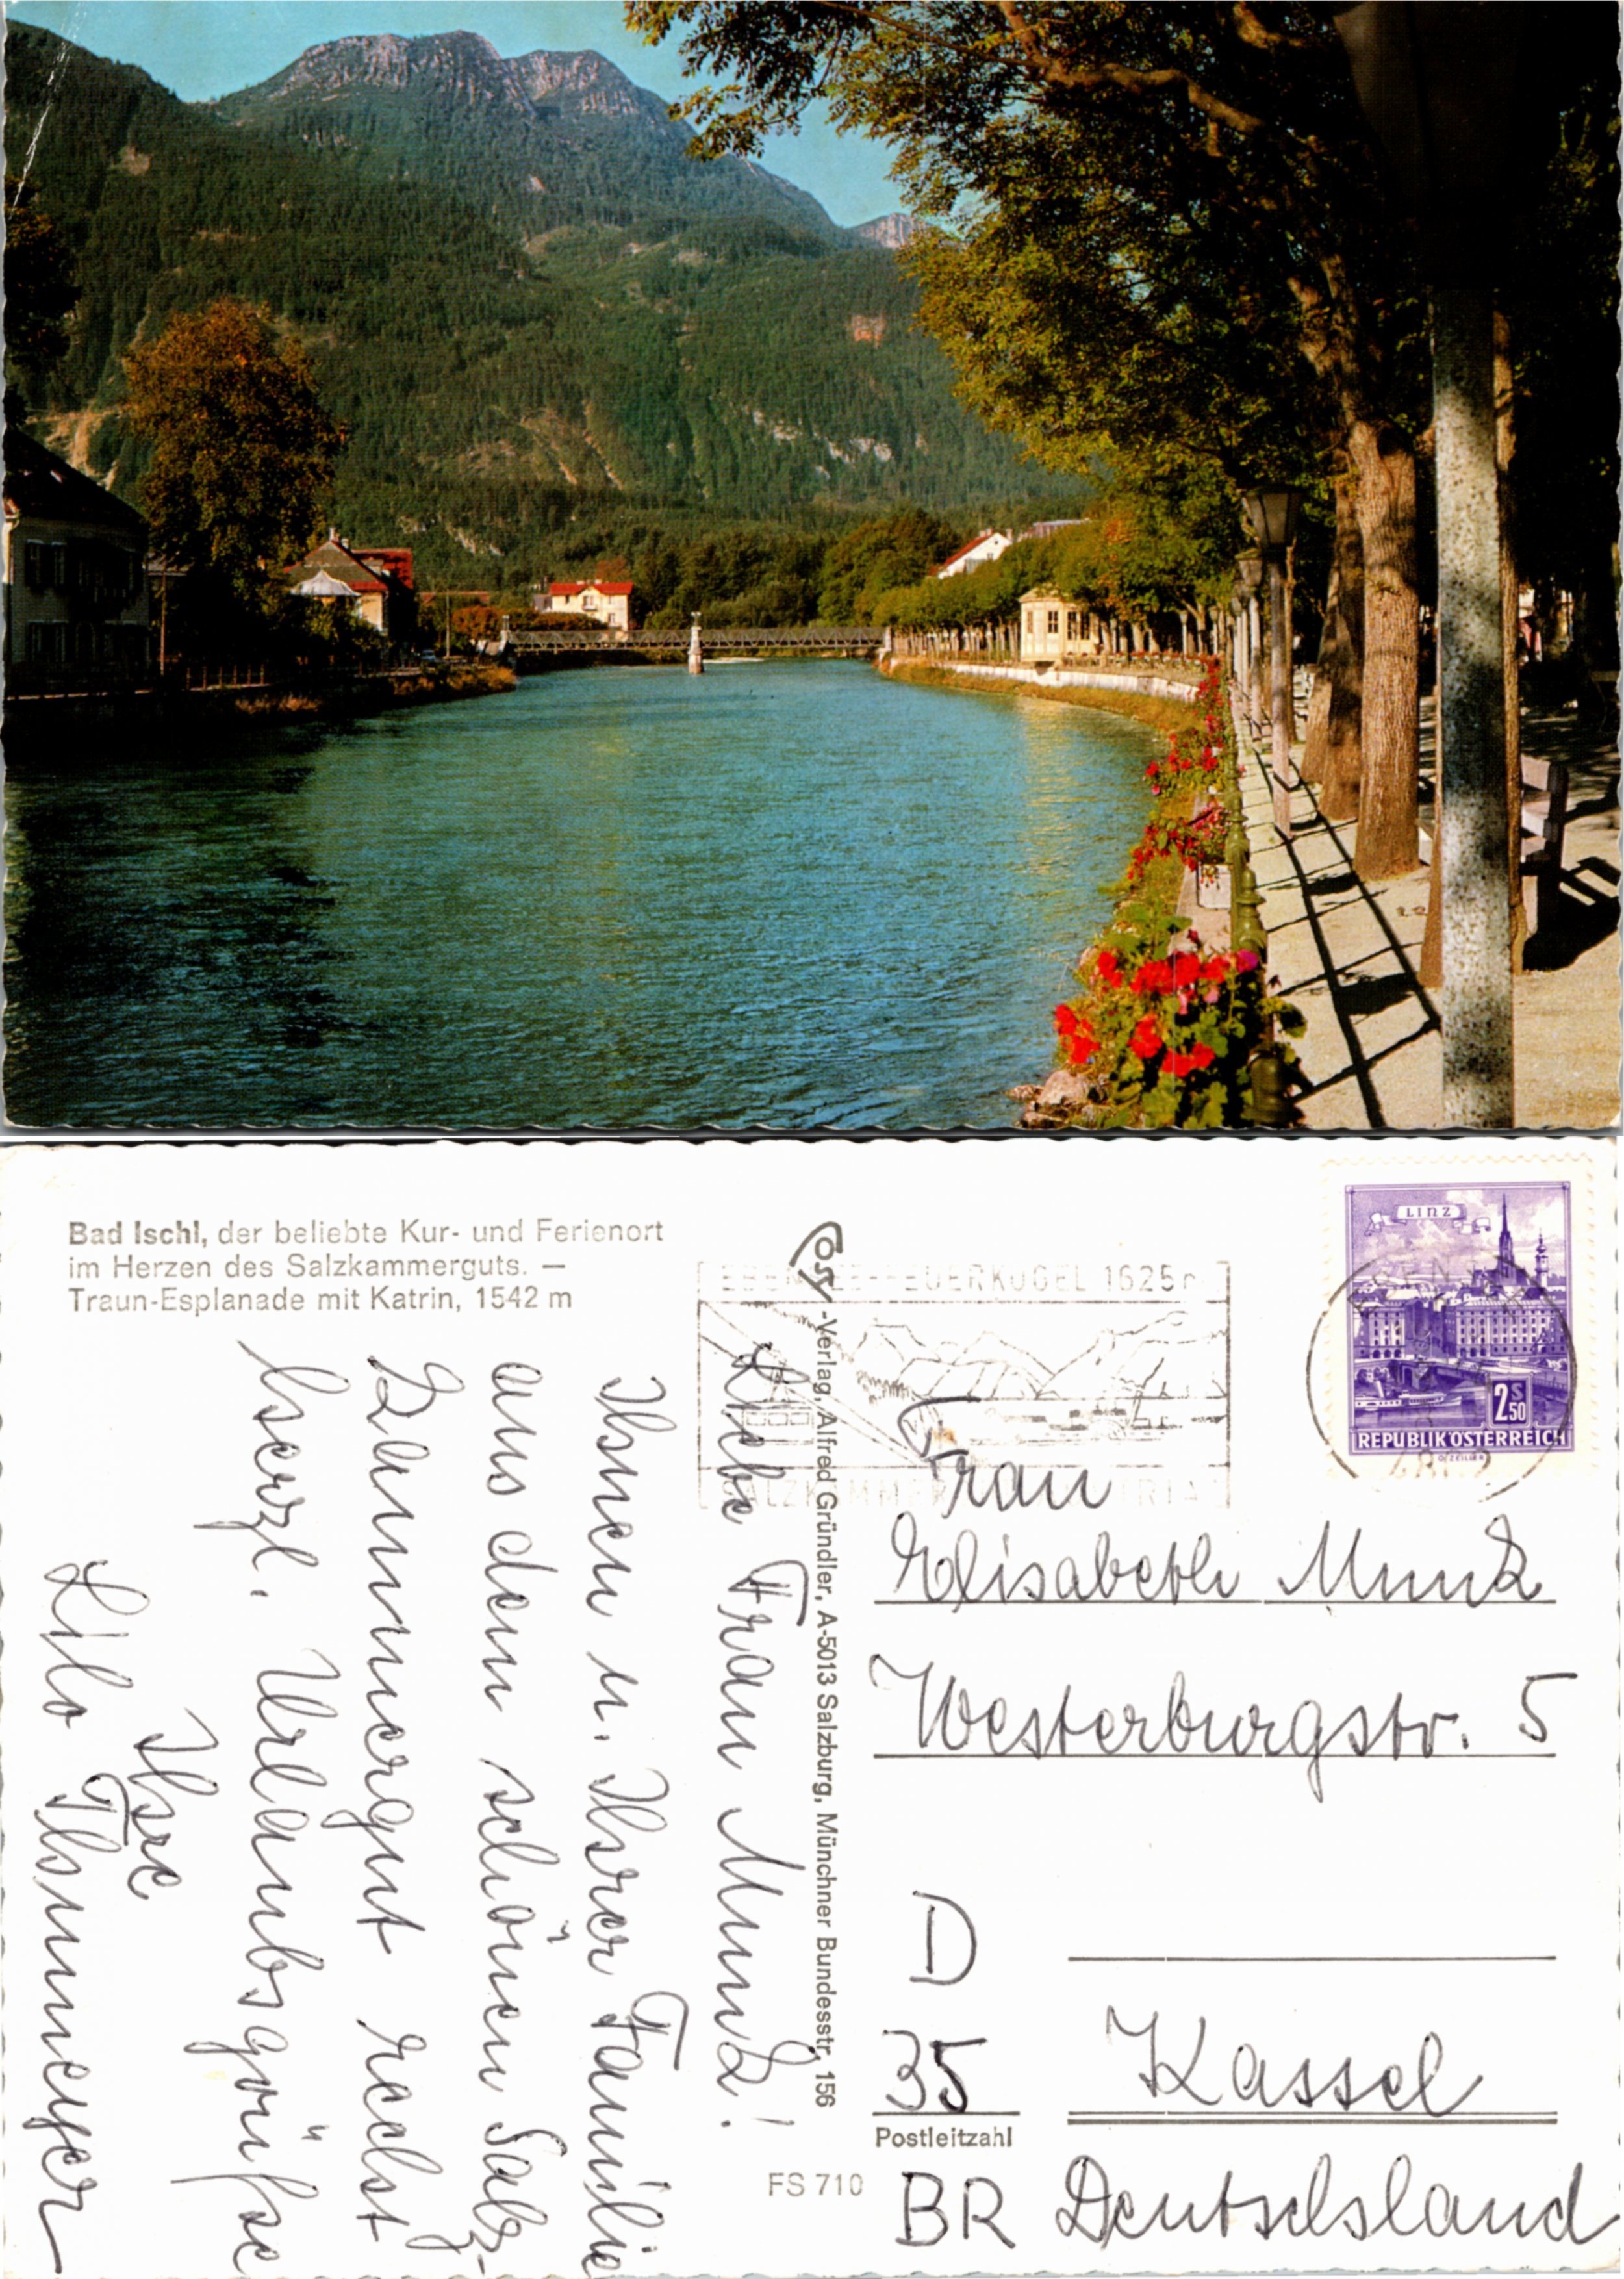 Bad Ischl, der beliebte Kur- und Ferienort
im Herzen des Salzkammerguts. —
Traun-Esplanade mit Katrin, 1542 m
Liebe Frau Munk!
Ihnen u. Ihrer Familie
aus dem schönen Salz-
kammergut recht
herzl. Urlaubsgrüße
Ihre
Lilo Thumeyer
Cosy-Verlag, Alfred Gründler, A-5013 Salzburg, Münchner Bundesstr. 156
FS 710
FEUERKOGEL 1625 m
LINZ
2 S 50
REPUBLIK ÖSTERREICH
O. ZEILLER
Frau
Elisabeth Munk
Westerburgstr. 5
D
35 Kassel
Postleitzahl
BR Deutschland